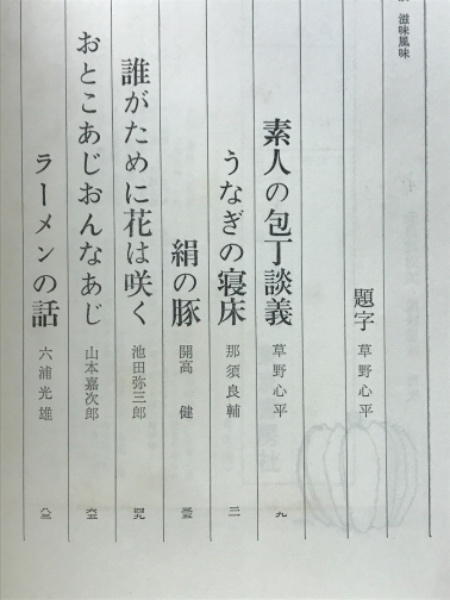 滋味風味
題字 草野心平
素人の包丁談義 草野心平 九
うなぎの寝床 那須良輔 二一
絹の豚 開高 健 三五
誰がために花は咲く 池田弥三郎 四九
おとこあじおんなあじ 山本嘉次郎 六五
ラーメンの話 六浦光雄 八三